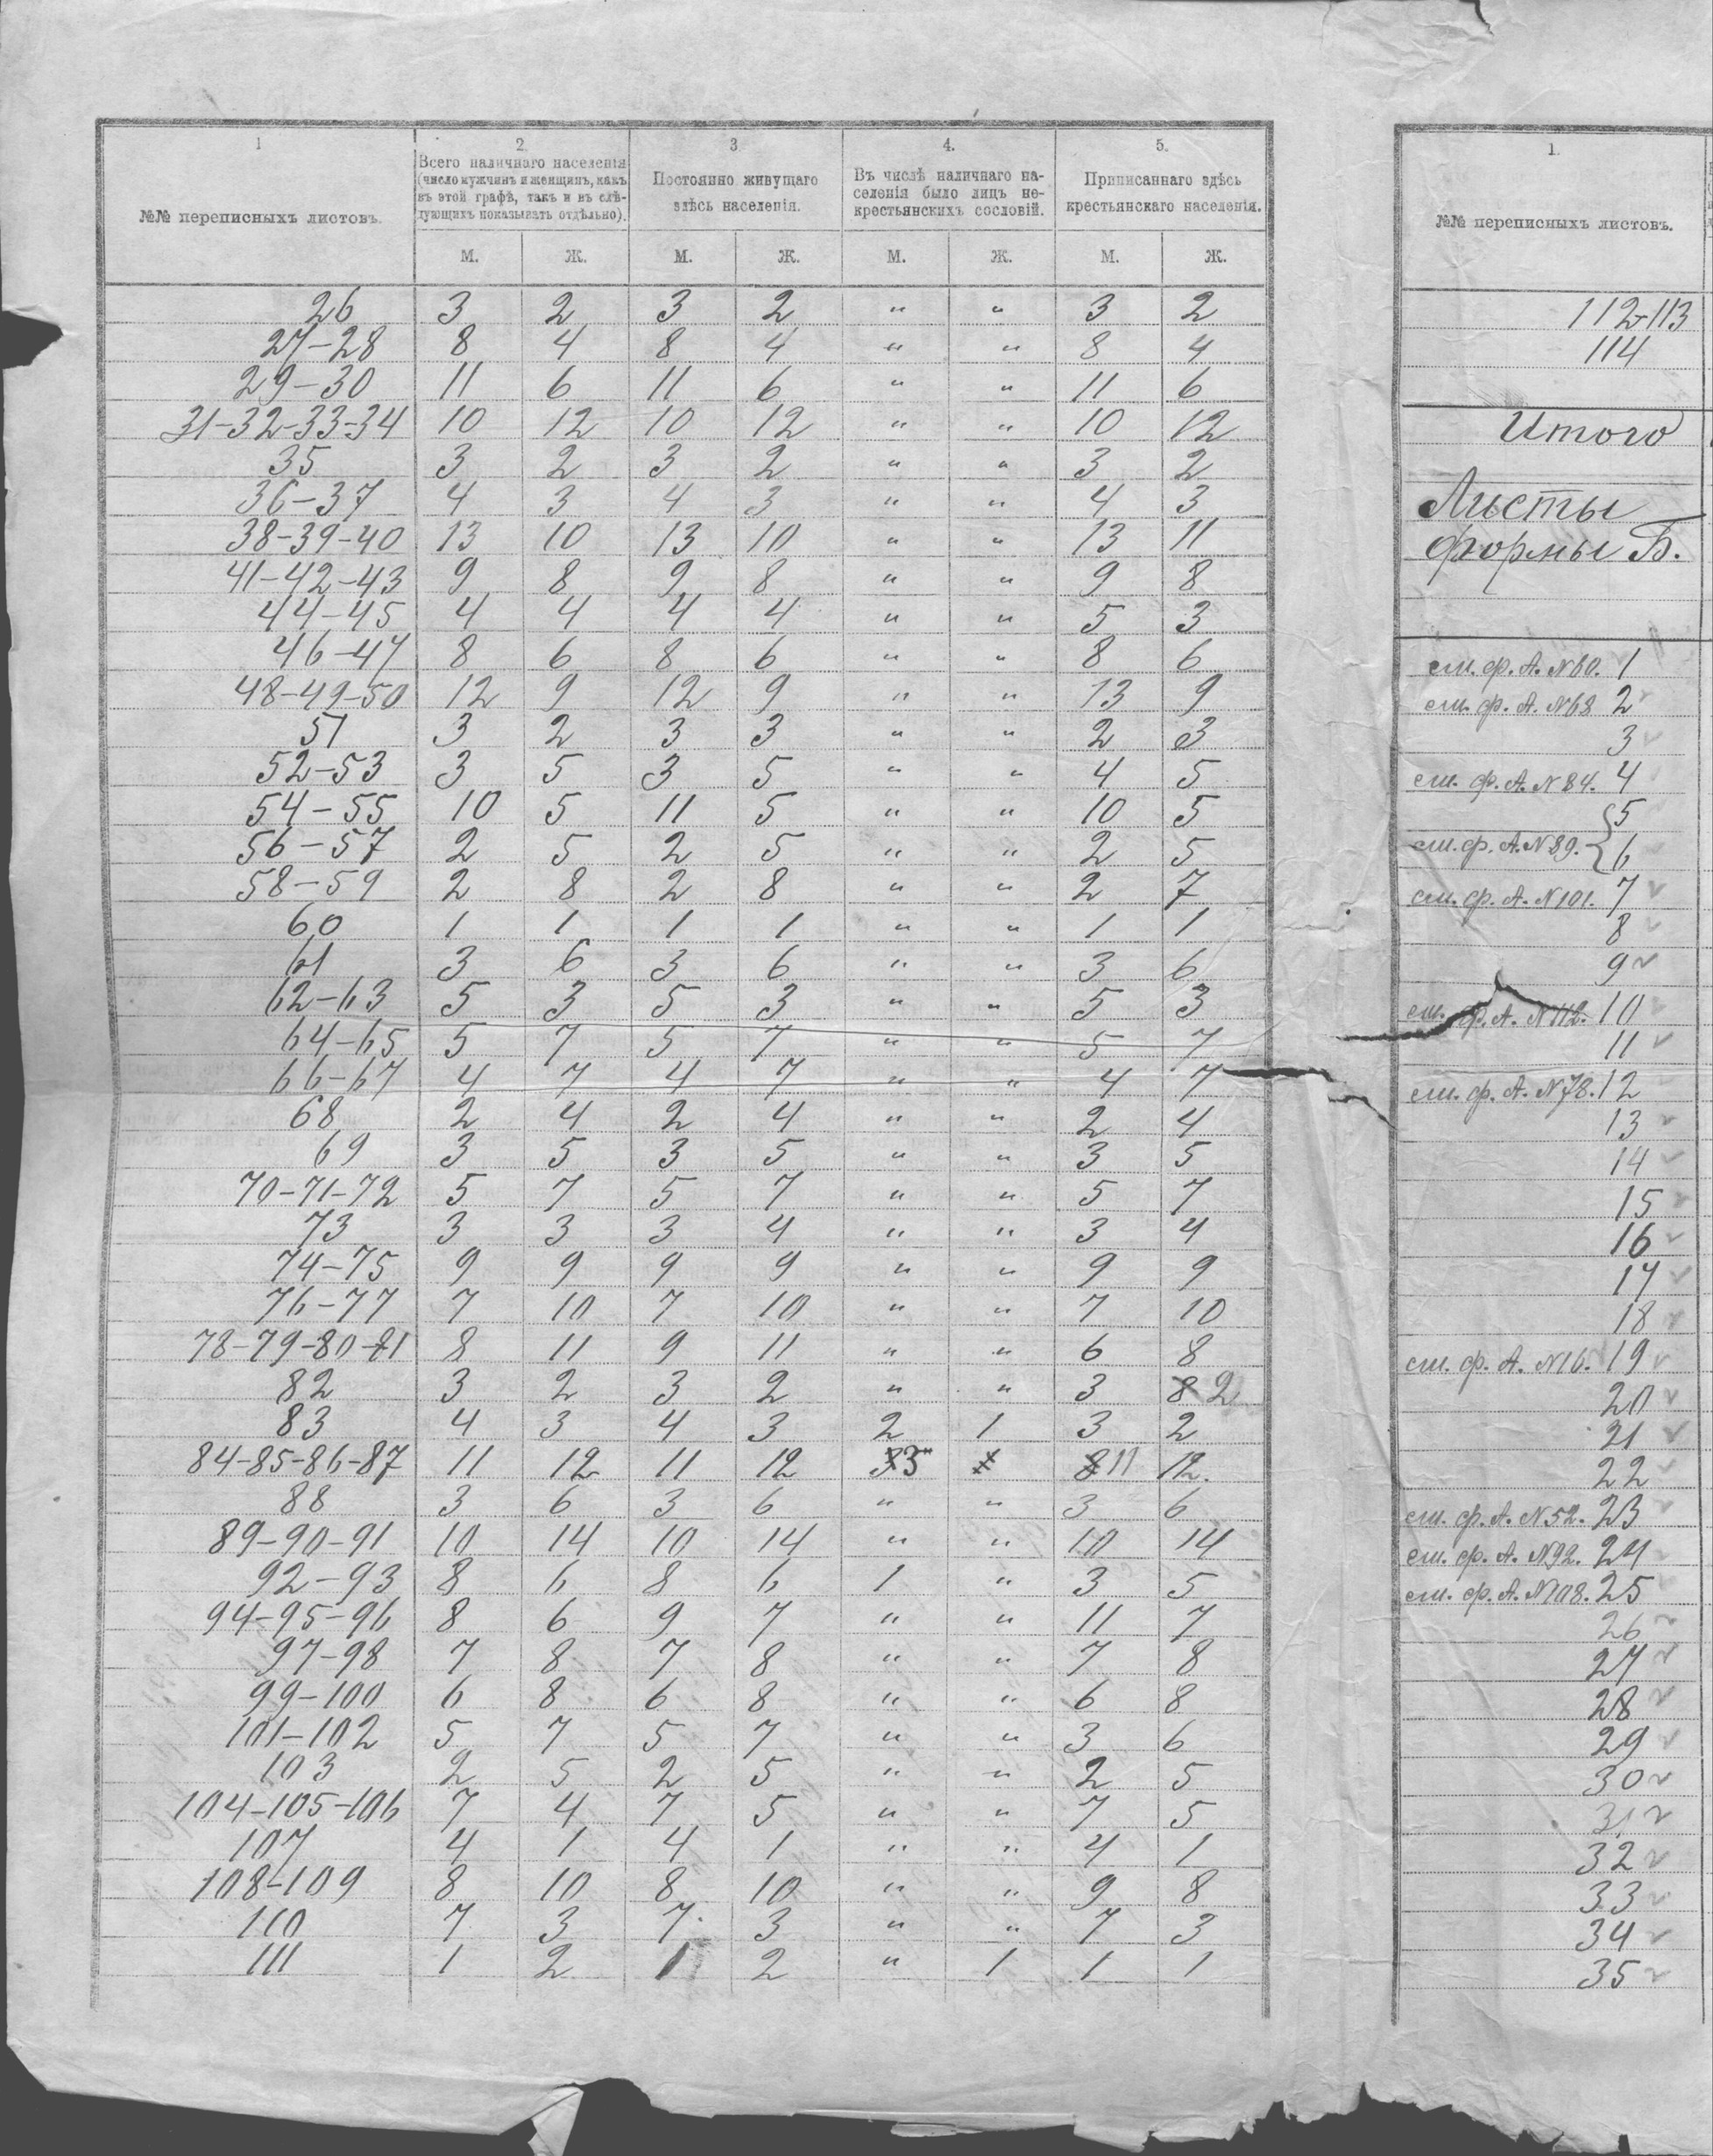 1
№№ переписныхъ листовъ.
2.
Всего наличнаго населенія
(число мужчинъ и женщинъ, какъ
въ этой графѣ, такъ и въ слѣ-
дующихъ показывать отдѣльно).
М. Ж.
3.
Постоянно живущаго
здѣсь населенія.
М. Ж.
4.
Въ числѣ наличнаго на-
селенія было лицъ не-
крестьянскихъ сословій.
М. Ж.
5.
Приписаннаго здѣсь
крестьянскаго населенія.
М. Ж.
26 3 2 3 2 " " 3 2
27-28 8 4 8 4 " " 8 4
29-30 11 6 11 6 " " 11 6
31-32-33-34 10 12 10 12 " " 10 12
35 3 2 3 2 " " 3 2
36-37 4 3 4 3 " " 4 3
38-39-40 13 10 13 10 " " 13 11
41-42-43 9 8 9 8 " " 9 8
44-45 4 4 4 4 " " 5 3
46-47 8 6 8 6 " " 8 6
48-49-50 12 9 12 9 " " 13 9
51 3 2 3 3 " " 2 3
52-53 3 5 3 5 " " 4 5
54-55 10 5 11 5 " " 10 5
56-57 2 5 2 5 " " 2 5
58-59 2 8 2 8 " " 2 7
60 1 1 1 1 " " 1 1
61 3 6 3 6 " " 3 6
62-63 5 3 5 3 " " 5 3
64-65 5 7 5 7 " " 5 7
66-67 4 7 4 7 " " 4 7
68 2 4 2 4 " " 2 4
69 3 5 3 5 " " 3 5
70-71-72 5 7 5 7 " " 5 7
73 3 3 3 4 " " 3 4
74-75 9 9 9 9 " " 9 9
76-77 7 10 7 10 " " 7 10
78-79-80-81 8 11 9 11 " " 6 8
82 3 2 3 2 " " 3 8 2
83 4 3 4 3 2 1 3 2
84-85-86-87 11 12 11 12 3 8 11 12.
88 3 6 3 6 " " 3 6
89-90-91 10 14 10 14 " " 10 14
92-93 8 6 8 6 1 " 3 5
94-95-96 8 6 9 7 " " 11 7
97-98 7 8 7 8 " " 7 8
99-100 6 8 6 8 " " 6 8
101-102 5 7 5 7 " " 3 6
103 2 5 2 5 " " 2 5
104-105-106 7 4 7 5 " " 7 5
107 4 1 4 1 " " 4 1
108-109 8 10 8 10 " " 9 8
110 7 3 7. 3 " " 7 3
111 1 2 1 2 " 1 1 1
1.
№№ переписныхъ листовъ.
112-113
114
Итого
Листы
формы Б.
см. ф. А. N 60. 1
см. ф. А. N 68 2
3
см. ф. А. N 84. 4
5
см. ф. А. N 89. 6
см. ф. А. N 101. 7
8
9
см. ф. А. N 112. 10
11
см. ф. А. N 78. 12
13
14
15
16
17
18
см. ф. А. N 16. 19
20
21
22
см. ф. А. N 52. 23
см. ф. А. N 92. 24
см. ф. А. N 108. 25
26
27
28
29
30
31
32
33
34
35